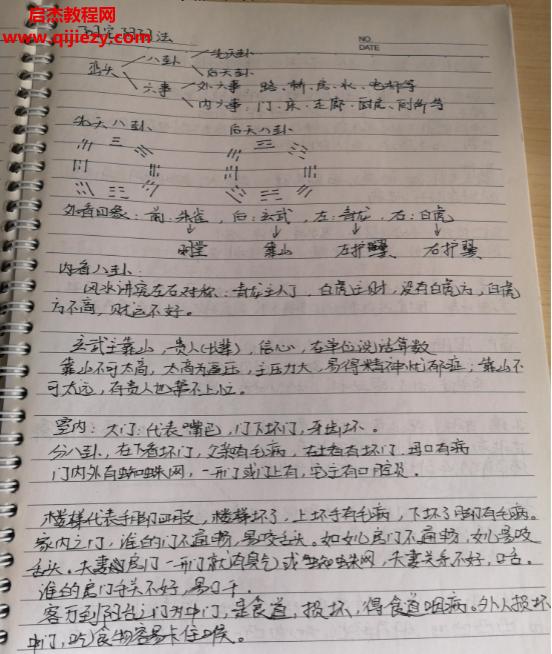 启杰教程网
www.qijiezy.com
阳宅 法
NO.
DATE
八卦 先天卦
峦头 后天卦
六事 外六事：路、桥、房、水、电杆等
内六事：门、床、走廊、厨房、厕所等
先天八卦 后天八卦
外看四象：前：朱雀，后：玄武，左：青龙，右：白虎
明堂 靠山 左护 右护
内看八卦：
风水讲究左右对称，青龙主人丁，白虎主财，没有白虎方，白虎
方不高，财运不好。
玄武主靠山，贵人(长辈)，信心，在单位说话算数
靠山不可太高，太高为 压，主压力大，易得精神忧郁症；靠山不
可太远，有贵人也帮不上忙。
室内：大门：代表嘴巴，门下坏门，牙齿坏。
分八卦，在下者坏门，父亲有毛病，在 者有坏门，母口有病
门内外有蜘蛛网，一开门或门上有，宅主有口腔炎。
楼梯代表手脚四肢，楼梯坏了，上坏手有毛病，下坏了脚有毛病。
家内之门，谁的门不通畅，易咬舌头。如女儿房门不通畅，女儿易咬
舌头。夫妻的房门一开门就有臭气或蜘蛛网，夫妻关系不好，口舌。
谁的房门开关不好，易口干。
客厅到阳台之门为中门，是食道，损坏，得食道咽病。外人损坏
中门，吃食物容易卡住喉。